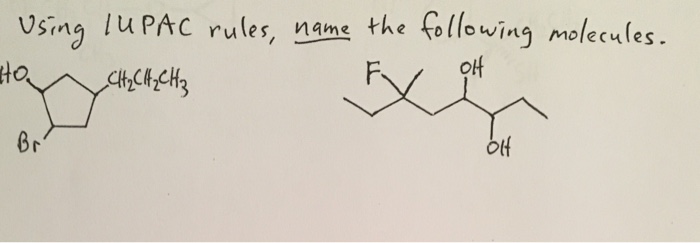 Using IUPAC rules, name the following molecules.
HO CH₂CH₂CH₃ F OH
Br OH